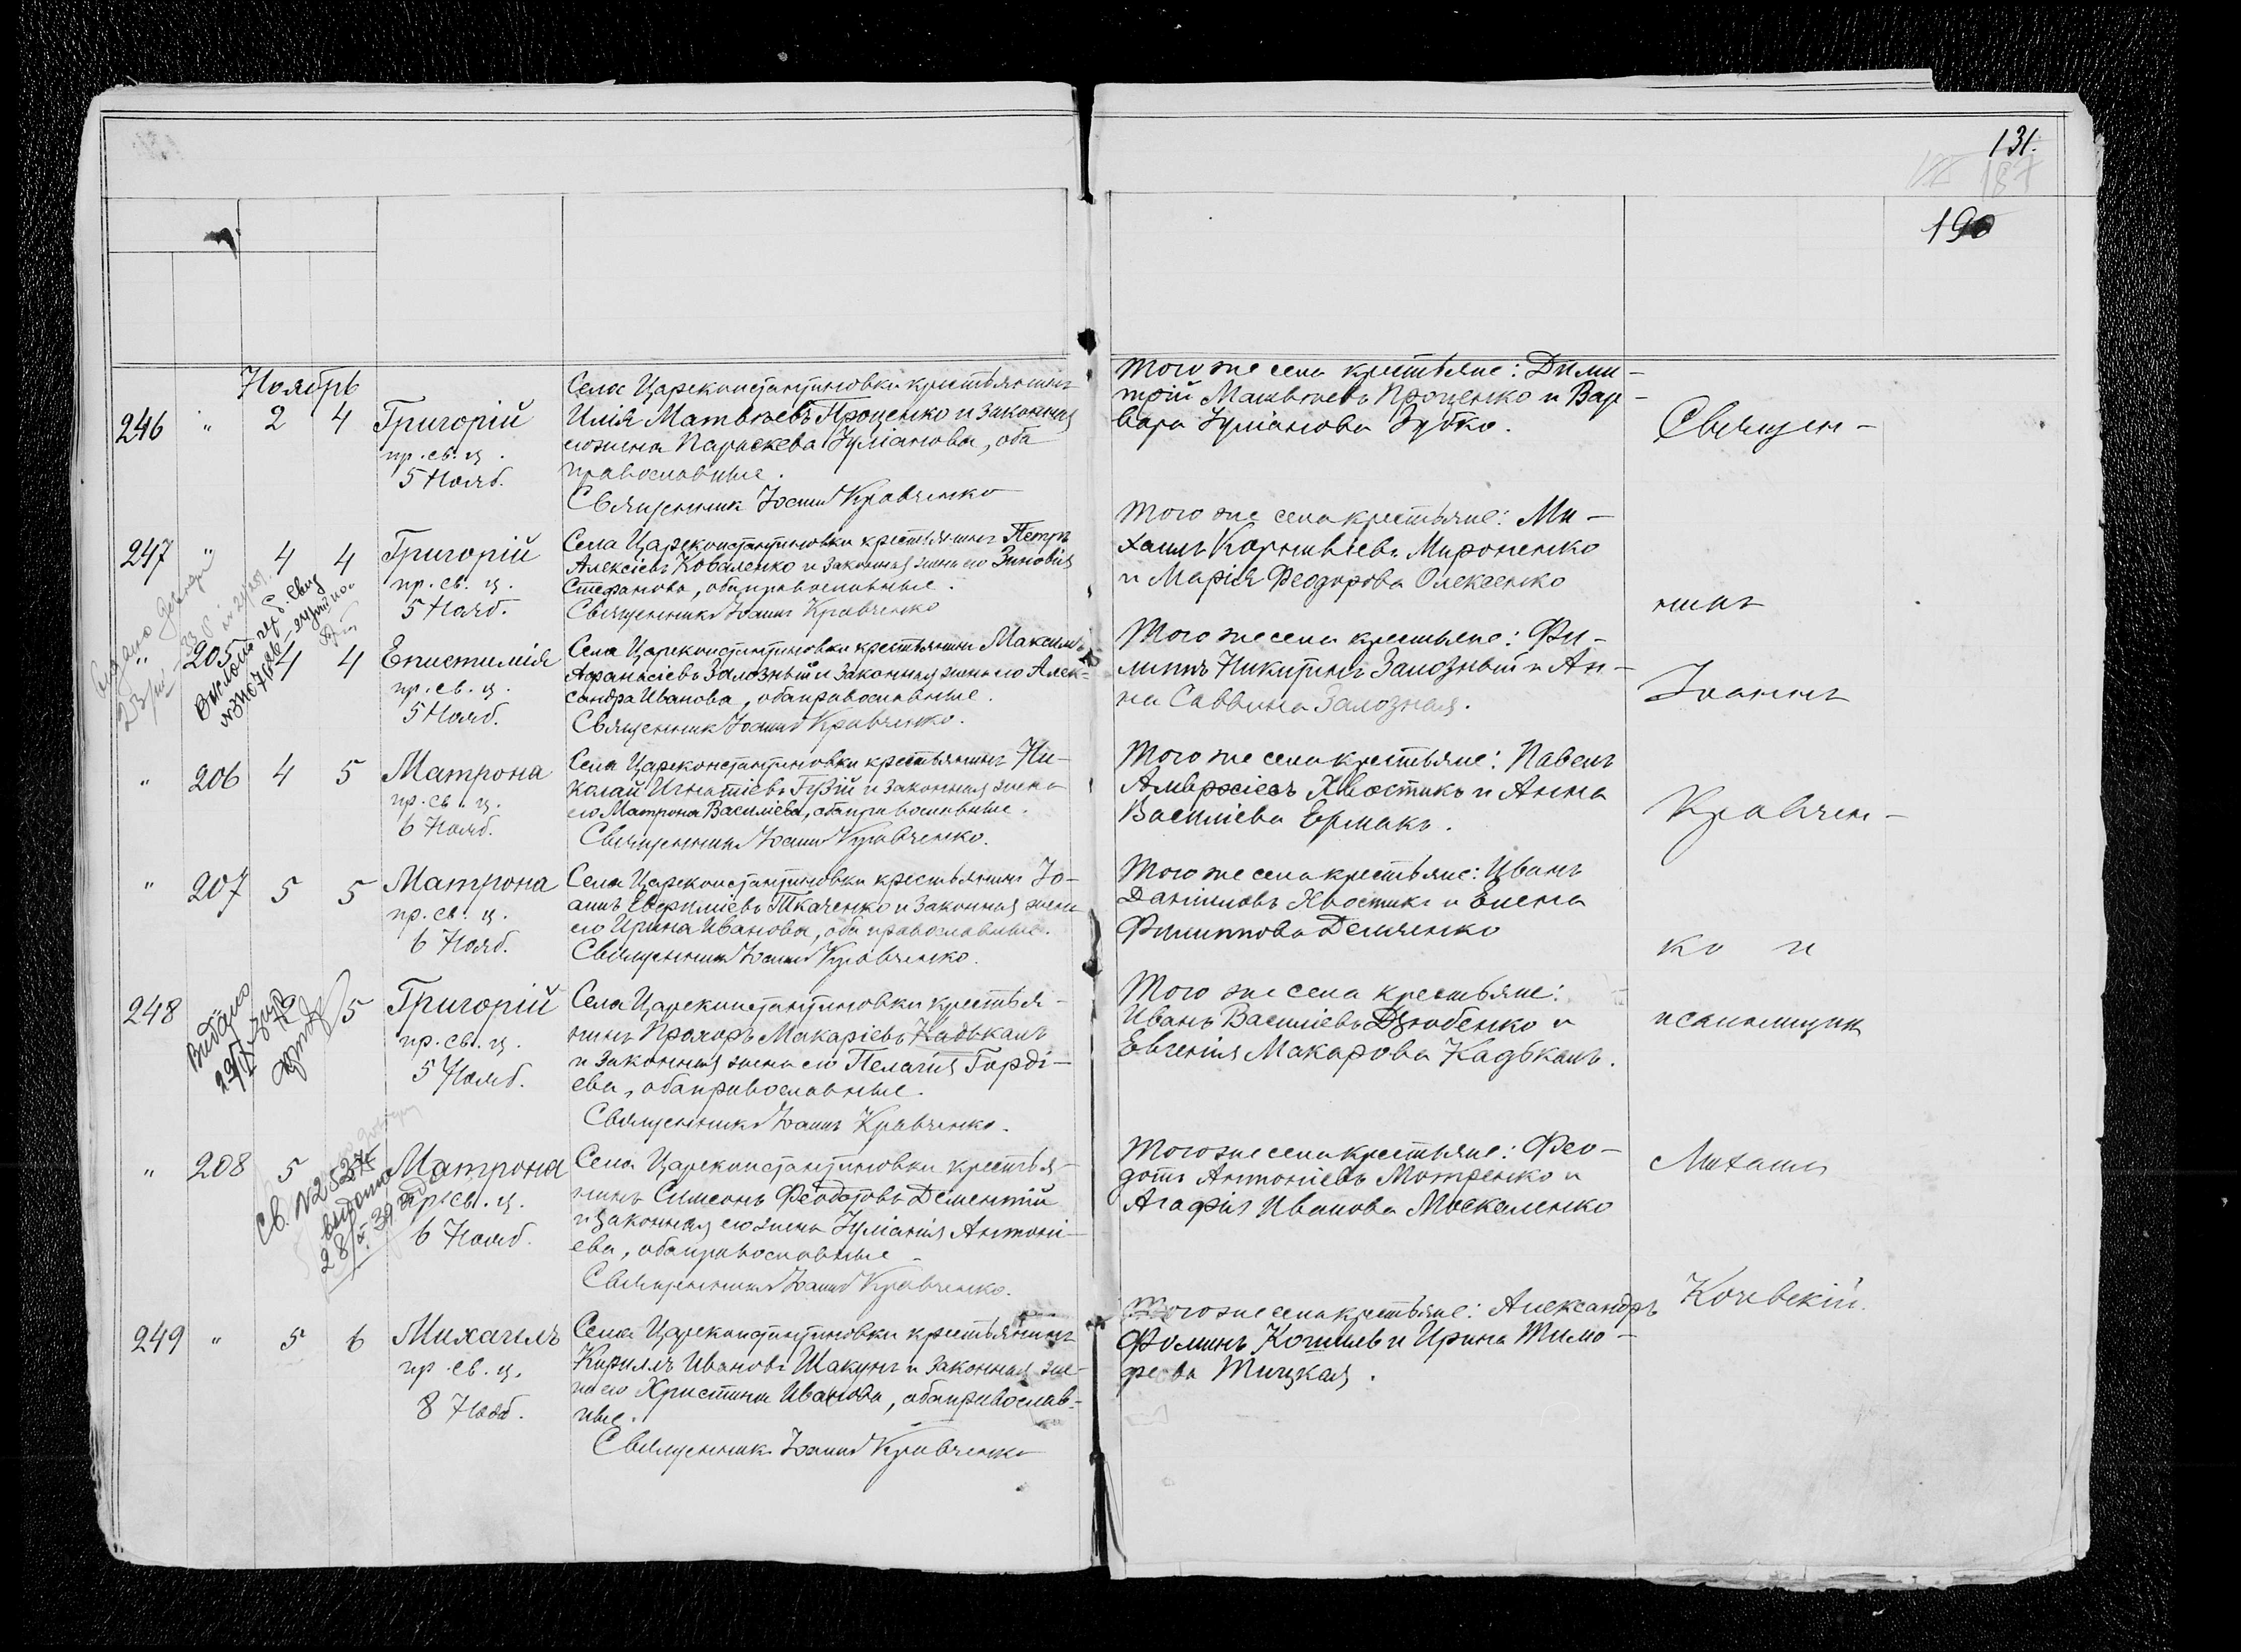 131.
187
190
Ноябрь
246 " 2 4 Григорій
пр. св. ц.
5 Нояб.
Села Цареконстантиновки крестьянинъ
Илія Матвѣевъ Проценко и законная
его жена Параскева Іуліанова, оба
православные.
Священникъ Іоаннъ Кравченко
Того же села крестьяне: Дими-
трій Матвѣевъ Проценко и Вар-
вара Іуліанова Зубко.
Священ-
247 " 4 4 Григорій
пр. св. ц.
5 Нояб.
Села Цареконстантиновки крестьянинъ Петръ
Алексіевъ Коваленко и законная жена его Зиновія
Стефанова, оба православные.
Священникъ Іоаннъ Кравченко
Того же села крестьяне: Ми-
хаилъ Корниліевъ Мироненко
и Марія Феодорова Олексенко
никъ
" 205 4 4 Епистимія
пр. св. ц.
5 Нояб.
Села Цареконстантиновки крестьянинъ Максимъ
Афанасіевъ Залозный и законная жена его Алек-
сандра Иванова, оба православные.
Священникъ Іоаннъ Кравченко.
Того же села крестьяне: Фи-
липпъ Никитинъ Залозный и Ан-
на Саввина Залозная.
Іоаннъ
" 206 4 5 Матрона
пр. св. ц.
6 Нояб.
Села Цареконстантиновки крестьянинъ Ни-
колай Игнатіевъ Гузій и законная жена
его Матрона Василіева, оба православные.
Священникъ Іоаннъ Кравченко.
Того же села крестьяне: Павелъ
Амвросіевъ Хвостикъ и Анна
Василіева Ермакъ.
Кравчен-
" 207 5 5 Матрона
пр. св. ц.
6 Нояб.
Села Цареконстантиновки крестьянинъ Іо-
аннъ Евфиміевъ Ткаченко и законная жена
его Ирина Иванова, оба православные.
Священникъ Іоаннъ Кравченко.
Того же села крестьяне: Иванъ
Даніиловъ Хвостикъ и Елена
Филиппова Демченко
ко и
248 5 Григорій
пр. св. ц.
5 Нояб.
Видано
Села Цареконстантиновки крестья-
нинъ Прохоръ Макаріевъ Кадькалъ
и законная жена его Пелагія Горді-
ева, оба православные.
Священникъ Іоаннъ Кравченко.
Того же села крестьяне:
Иванъ Василіевъ Дзюбенко и
Евгенія Макарова Кадькалъ.
псаломщикъ
" 208 5 Матрона
пр. св. ц.
6 Нояб.
Св. №
видано
Села Цареконстантиновки крестья-
нинъ Симеонъ Феодотовъ Дементій
и законная его жена Іуліанія Антоні-
ева, оба православные
Священникъ Іоаннъ Кравченко.
Того же села крестьяне: Фео-
дотъ Антоніевъ Мотренко и
Агафія Иванова Москаленко
Михаилъ
249 " 5 6 Михаилъ
пр. св. ц.
8 Нояб.
Села Цареконстантиновки крестьянинъ
Кириллъ Ивановъ Шакунъ и законная же-
на его Христина Иванова, оба православ-
ные.
Священникъ Іоаннъ Кравченко
Того же села крестьяне: Александръ
Фоминъ Кошель и Ирина Тимо-
феева Тицкая.